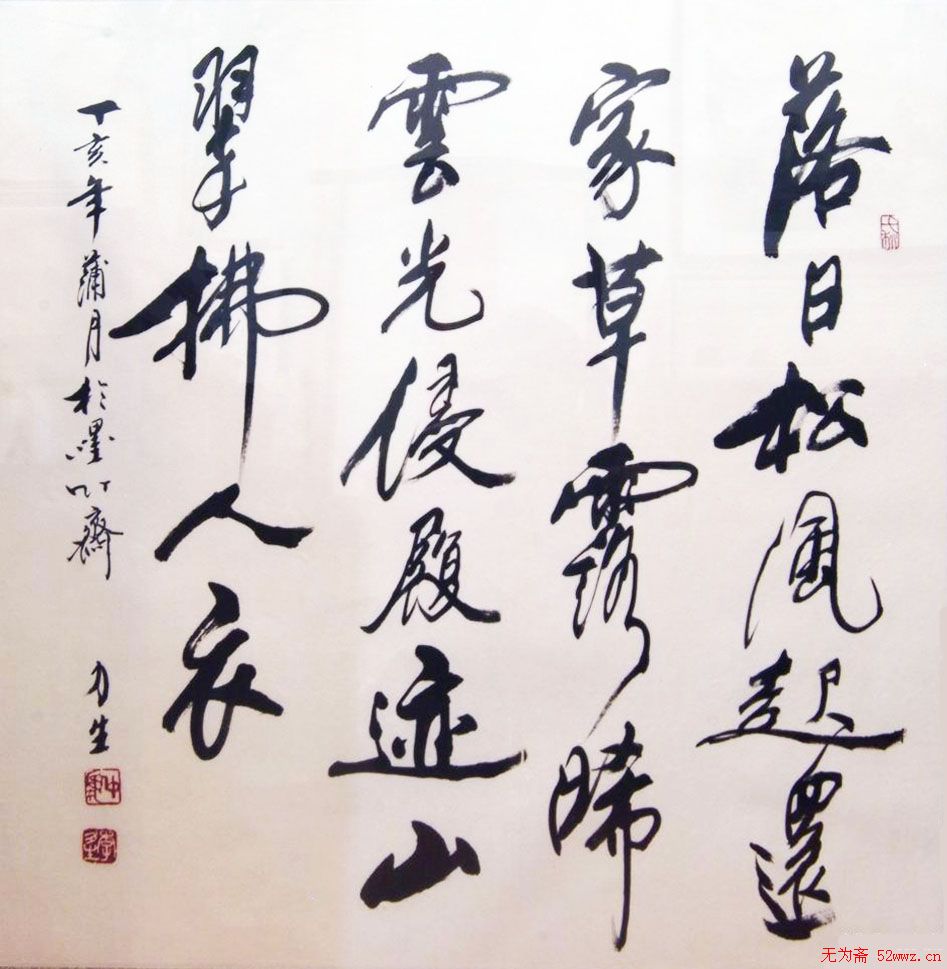 落日松風起還
家草露晞
雲光侵履迹山
翠拂人衣
丁亥年蒲月於墨竹齋
力生
无为斋 52wwz.cn